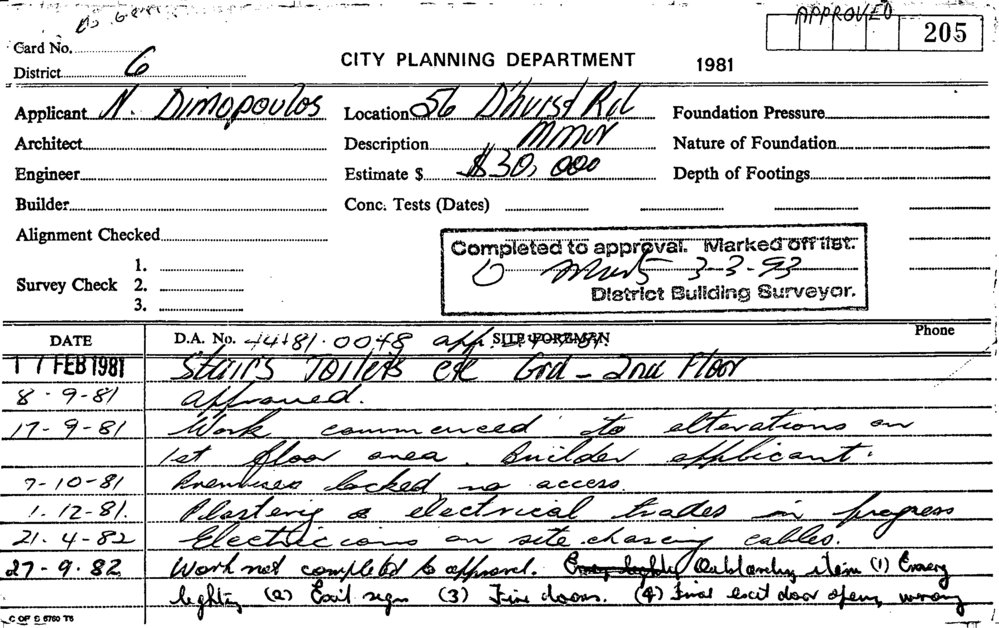 APPROVED
205
Card No.
District 6
CITY PLANNING DEPARTMENT 1981
Applicant N. Dimopoulos
Location 56 D'hurst Rd
Foundation Pressure
Architect
Description Minor
Nature of Foundation
Engineer
Estimate $ $30,000
Depth of Footings
Builder
Conc. Tests (Dates)
Alignment Checked
Completed to approval. Marked off list.
3-3-93
District Building Surveyor.
Survey Check
1.
2.
3.
DATE
D.A. No. 44.81.0048 app. SITE FOREMAN
Phone
17 FEB 1981 Stairs Toilets etc Grd - 2nd Floor
8-9-81 approved.
17-9-81 Work commenced to alterations on
1st floor area. Builder applicant.
7-10-81 Premises locked no access.
1.12-81. Plastering & electrical trades in progress
21.4-82 Electricians on site chasing cables.
27-9.82 Work not completed to approval. Outstanding item (1) Emerg
lighting (2) Exit sign (3) Fire doors. (4) Final exit door opens wrong
C OF S 5760 T5